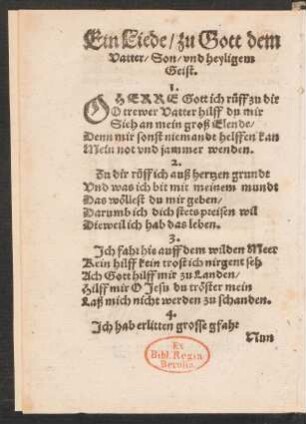 Ein Liede/ zu Gott dem
Vatter/ Son/ vnd heyligem
Geist.
1.
O HERRE Gott ich rüff zu dir
O trewer Vatter hilff du mir
Sich an mein groß Elende/
Denn mir sonst niemandt helffen kan
Mein not vnd jammer wenden.
2.
Zu dir rüff ich auß hertzen grundt
Vnd was ich bit mit meinem mundt
Das wöllest du mir geben/
Darumb ich dich stets preisen wil
Dieweil ich hab das leben.
3.
Ich fahr hie auff dem wilden Meer
Kein hilff kein trost ich nirgent seh
Ach Gott hilff mir zu Landen/
Hilff mir O Jesu du tröster mein
Laß mich nicht werden zu schanden.
4.
Ich hab erlitten grosse gfahr
Nun
Ex
Bibl. Regia
Berolin.